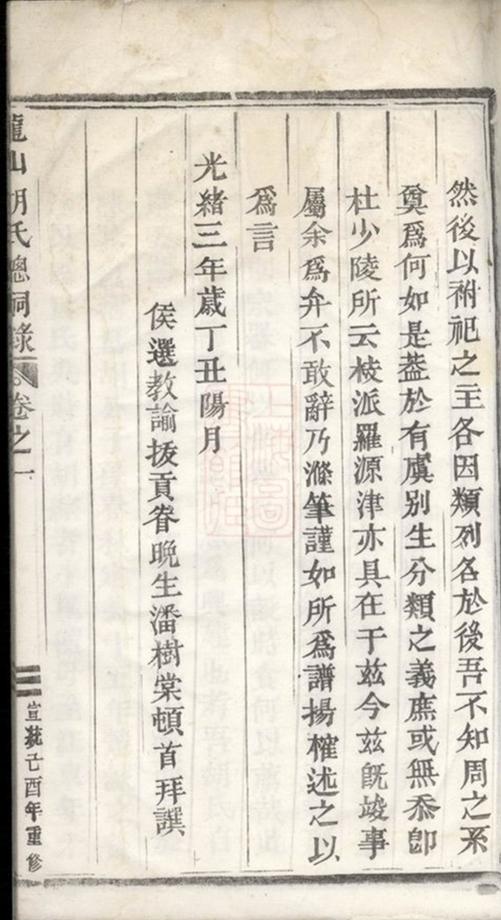 然後以祔祀之主各因類列名於後吾不知周之系
奠爲何如是葢於有虞别生分類之義庶或無忝卽
杜少陵所云枝派羅源津亦具在于兹今兹旣竣事
屬余爲弁不敢辭乃滌筆謹如所爲譜揚榷述之以
爲言
光緒三年歲丁丑陽月
侯選教諭拔貢眷晩生潘樹棠頓首拜譔
龍山胡氏總祠錄
卷之一
三
宣統己酉年重修